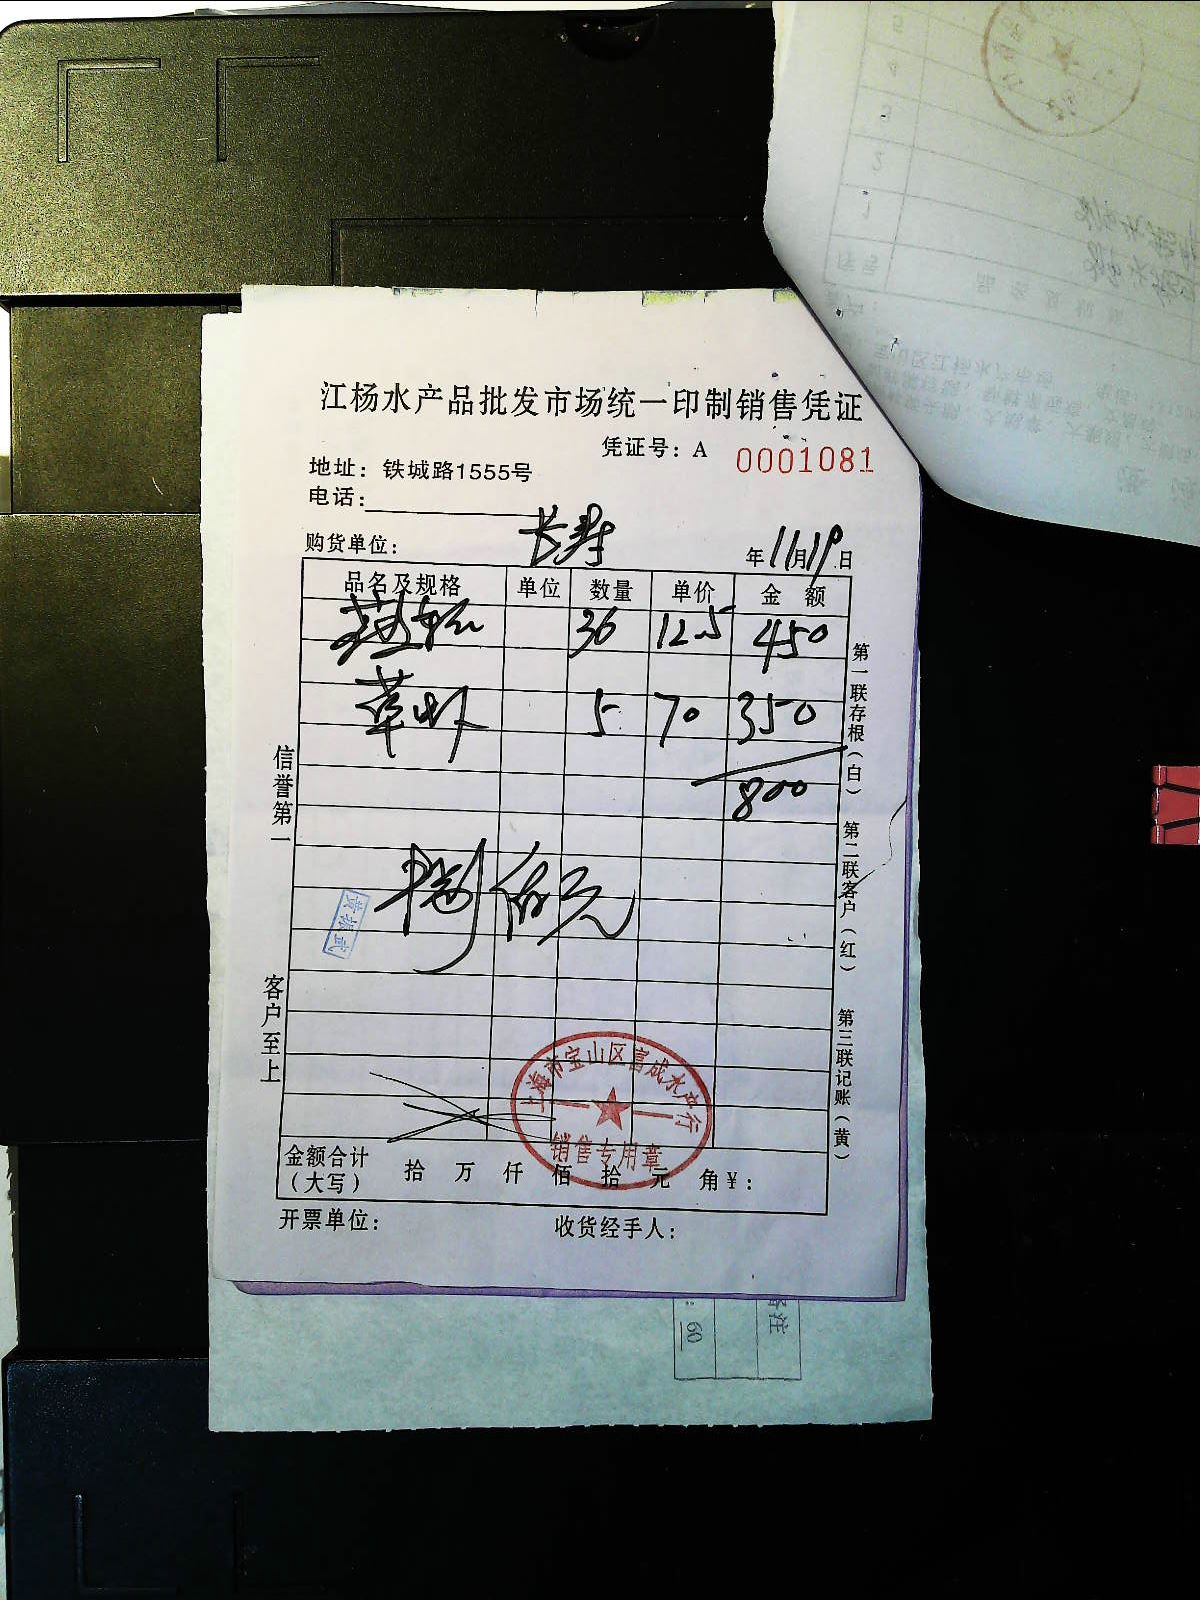 江杨水产品批发市场统一印制销售凭证
凭证号：A 0001081
地址：铁城路1555号
电话：
购货单位： 长寿 年11月19日
品名及规格 单位 数量 单价 金 额
36 12.5 450
草虾 5 70 350
800
捌佰元
黄振武
信誉第一
客户至上
第一联存根（白） 第二联客户（红） 第三联记账（黄）
上海市宝山区富成水产行
销售专用章
金额合计（大写） 拾 万 仟 佰 拾 元 角¥：
开票单位： 收货经手人：
备注
60
5
4
3
2
1
序号